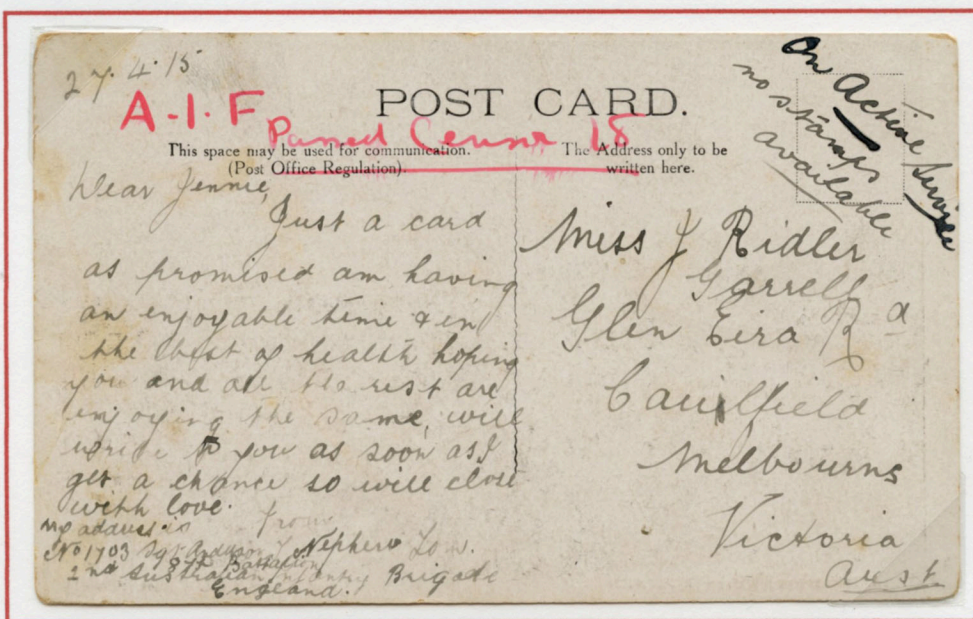 27.4.15
A.I.F
Passed Censor 18
POST CARD.
This space may be used for communication.
(Post Office Regulation).
The Address only to be
written here.
On Active Service
no stamps
available
Dear Jennie,
Just a card
as promised am having
an enjoyable time & in
the best of health hoping
you and all the rest are
enjoying the same, will
write to you as soon as I
get a chance so will close
with love.
from
Nephew
My address is
No 1703 Sgt
8th Battalion
2nd Australian Infantry Brigade
England.
Miss J Ridler
Garrell
Glen Eira Rd
Caulfield
Melbourne
Victoria
Aust